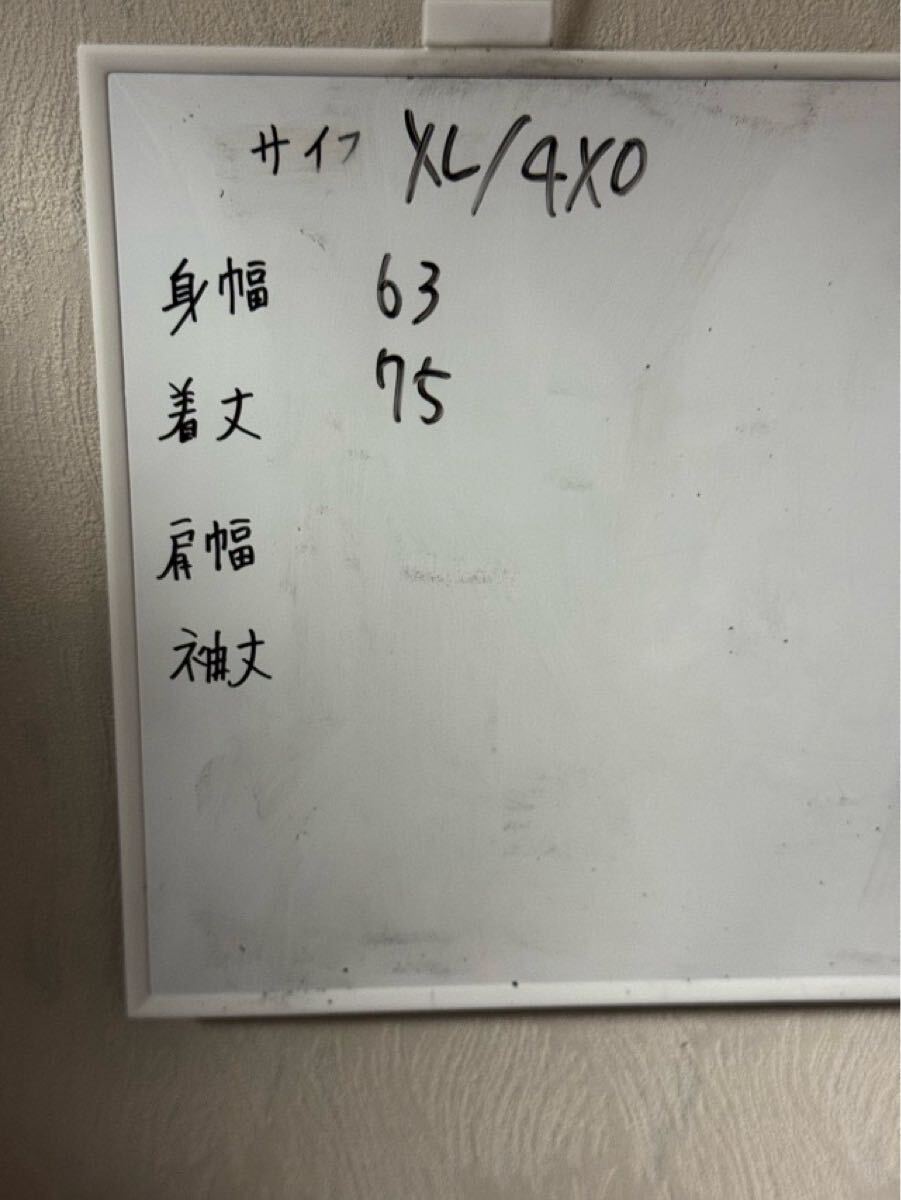 サイフ XL/4XO
身幅 63
着丈 75
肩幅
袖丈